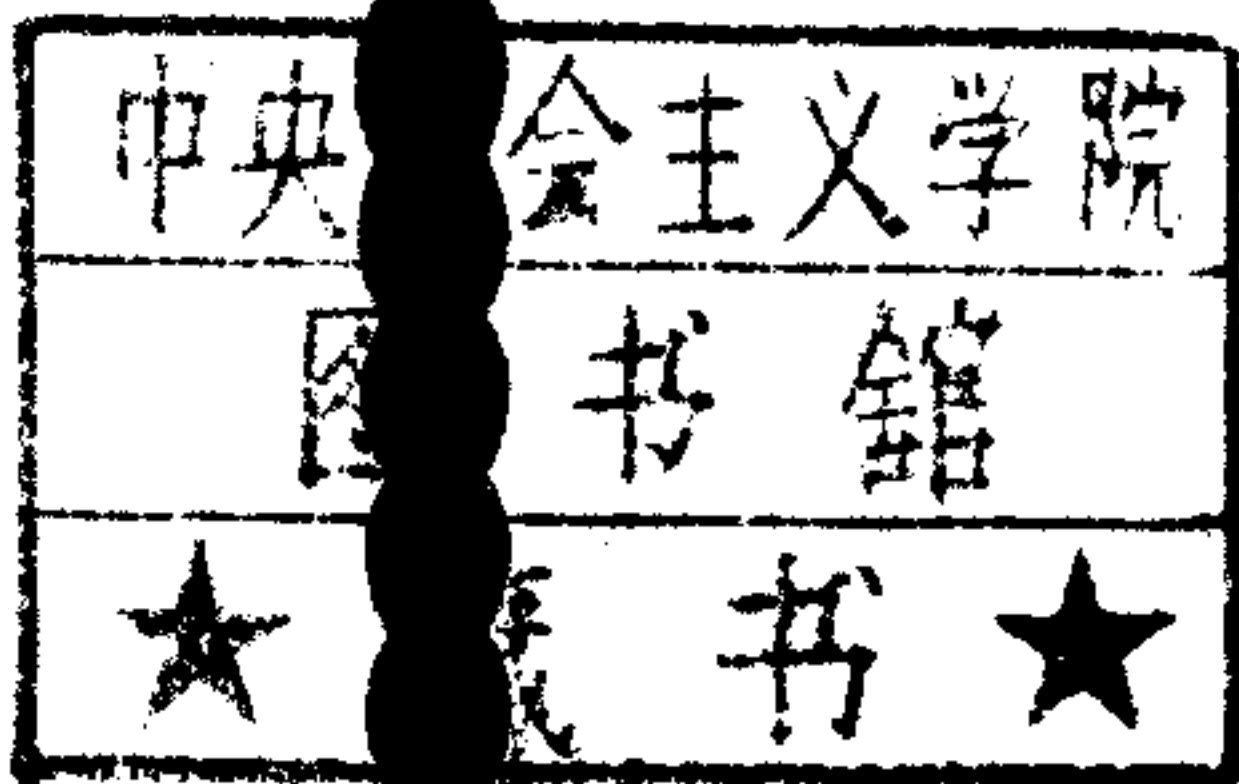 中央会主义学院
图书馆
书